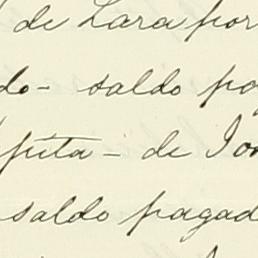 de Lara por
do - saldo pa
pita - de Jo
saldo pagad